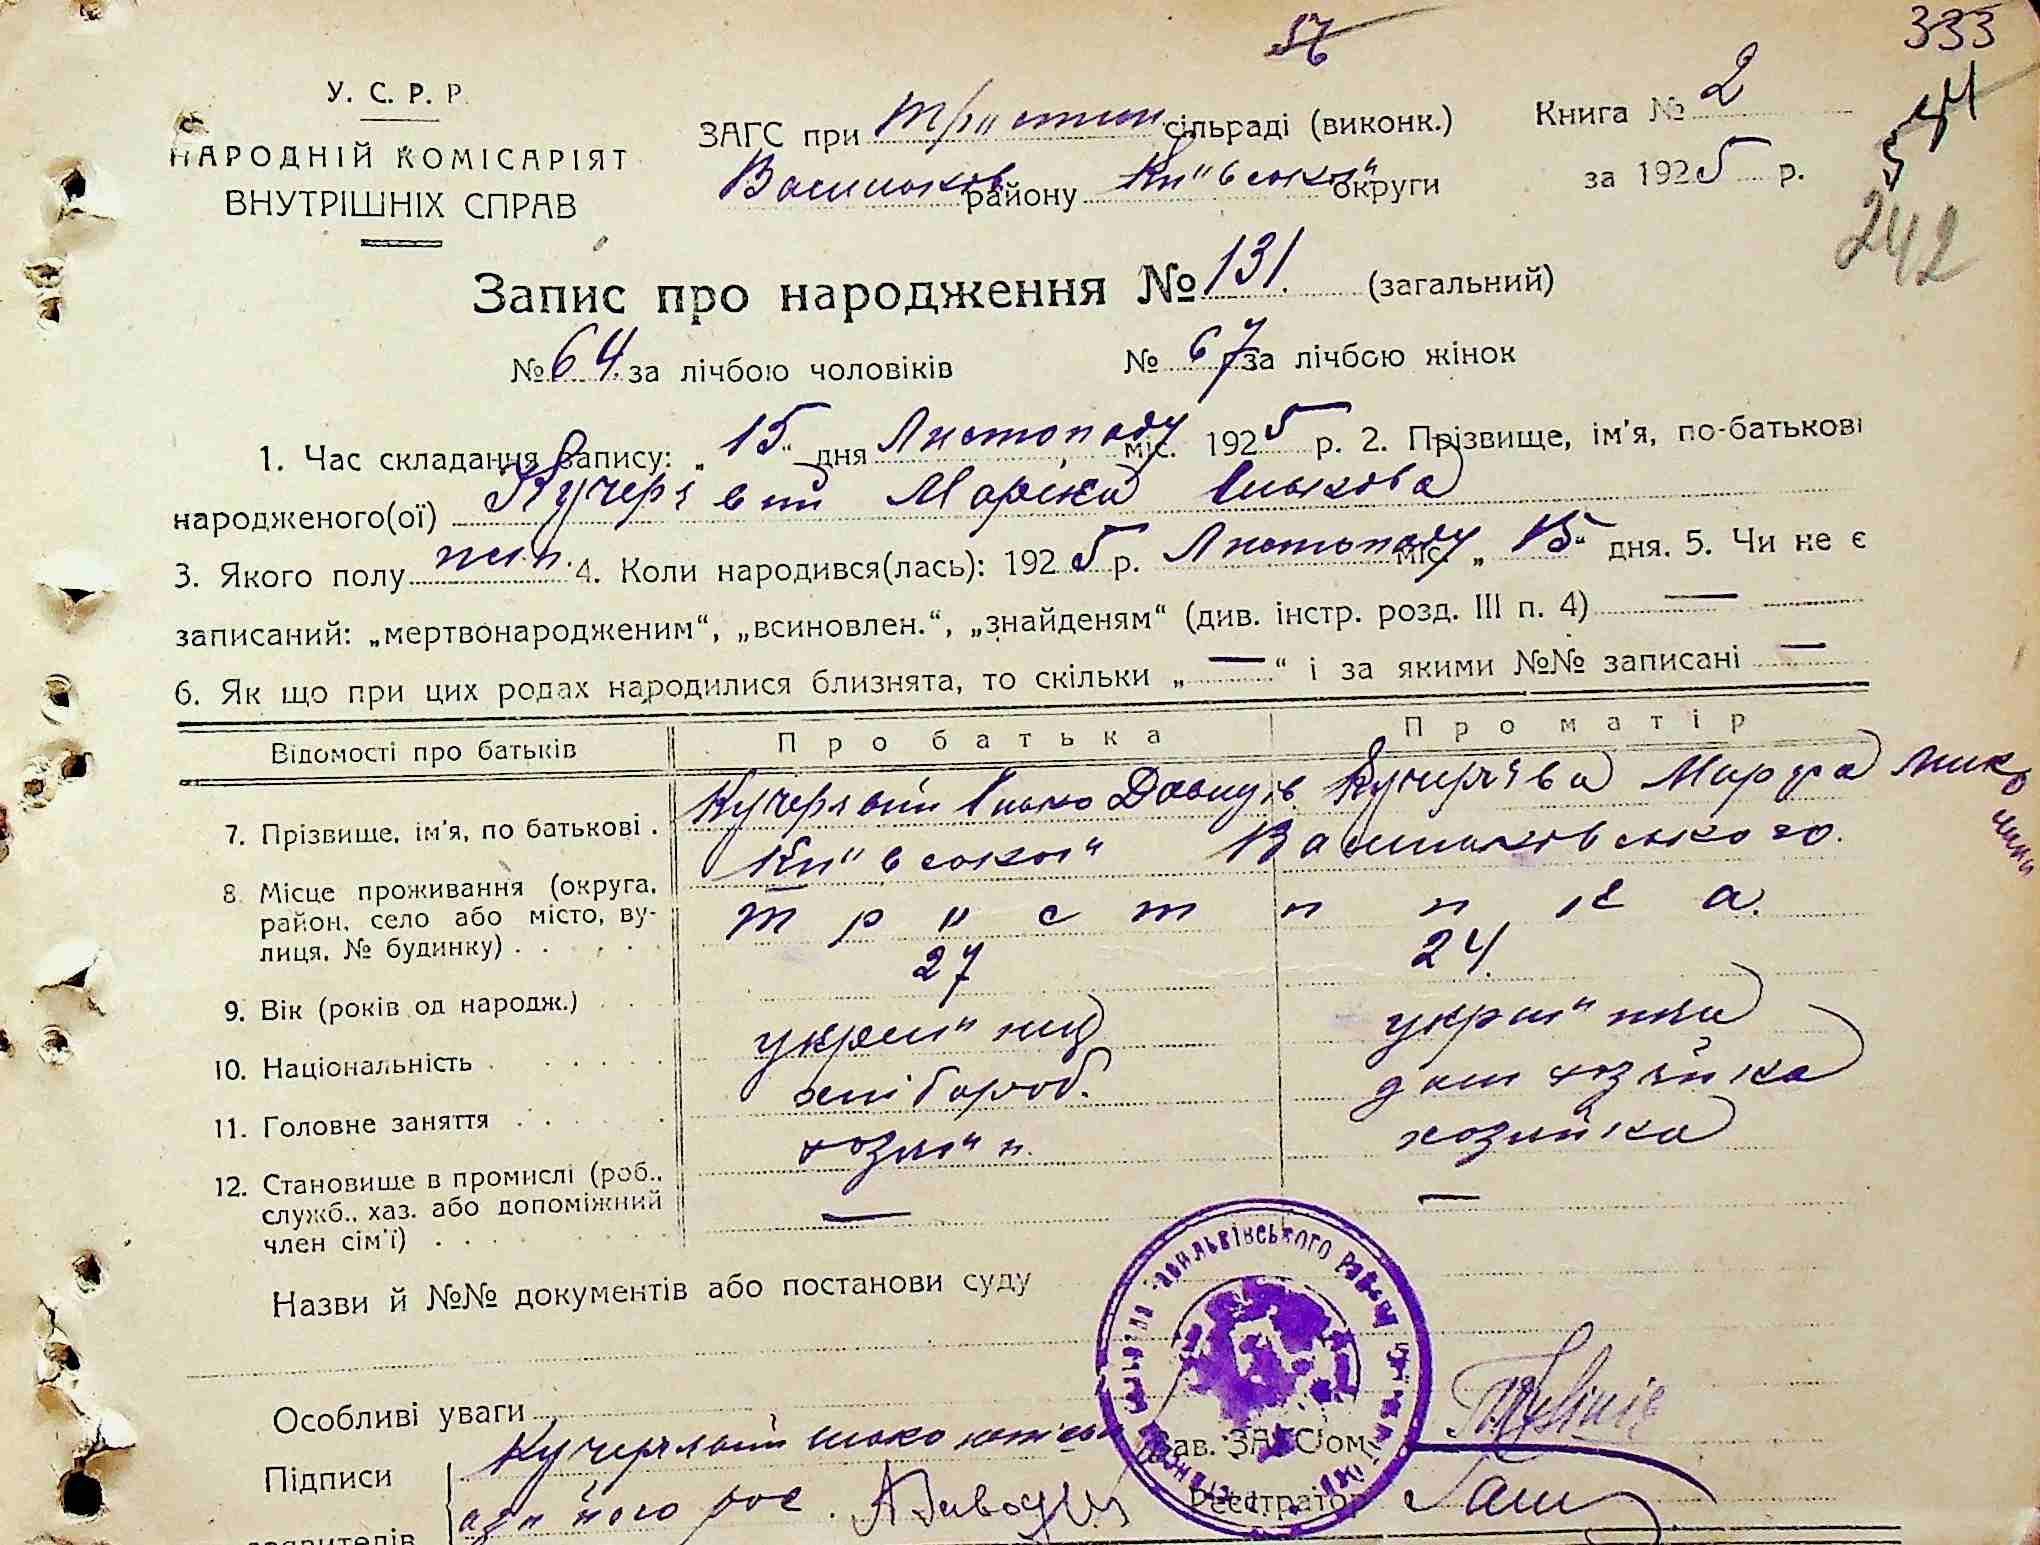 56 333
У. С. Р. Р.
НАРОДНІЙ КОМІСАРІЯТ
ВНУТРІШНІХ СПРАВ
ЗАГС при Тростин. сільраді (виконк.)
Васильков району Київської округи
Книга № 2
за 1925 р.
54
242
Запис про народження № 131. (загальний)
№ 64. за лічбою чоловіків № 67 за лічбою жінок
1. Час складання запису: „15“ дня Листопаду міс. 1925 р. 2. Прізвище, ім'я, по-батькові
народженого(ої) Кучерявий Марійка Ількова
3. Якого полу жін. 4. Коли народився(лась): 1925 р. Листопаду міс „15“ дня. 5. Чи не є
записаний: „мертвонародженим“, „всиновлен.“, „знайденям“ (див. інстр. розд. III п. 4) —
6. Як що при цих родах народилися близнята, то скільки „—“ і за якими №№ записані —
Відомості про батьків Про батька Про матір
7. Прізвище, ім'я, по батькові . Кучерявий Ілько Давидів Кучерява Марфа Миколаїв
8. Місце проживання (округа, район, село або місто, вулиця, № будинку) Київської Васильковського.
Тростинка.
9. Вік (років од народж.) 27 24.
10. Національність українец українка
11. Головне заняття хлібороб. дом хозяйка
12. Становище в промислі (роб., служб., хаз. або допоміжний член сім'ї) хозяїн. хозяйка
— —
Назви й №№ документів або постанови суду
Особливі уваги
Підписи Кучерявий Ілько Зав. ЗАГС'ом
заявителів Реєстратор